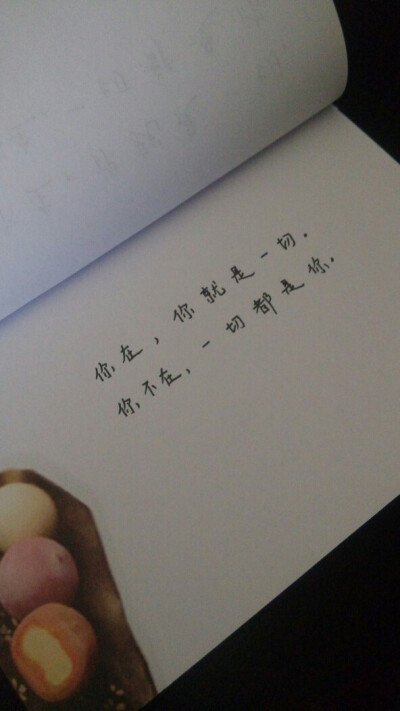 你在，你就是一切.
你不在，一切都是你.